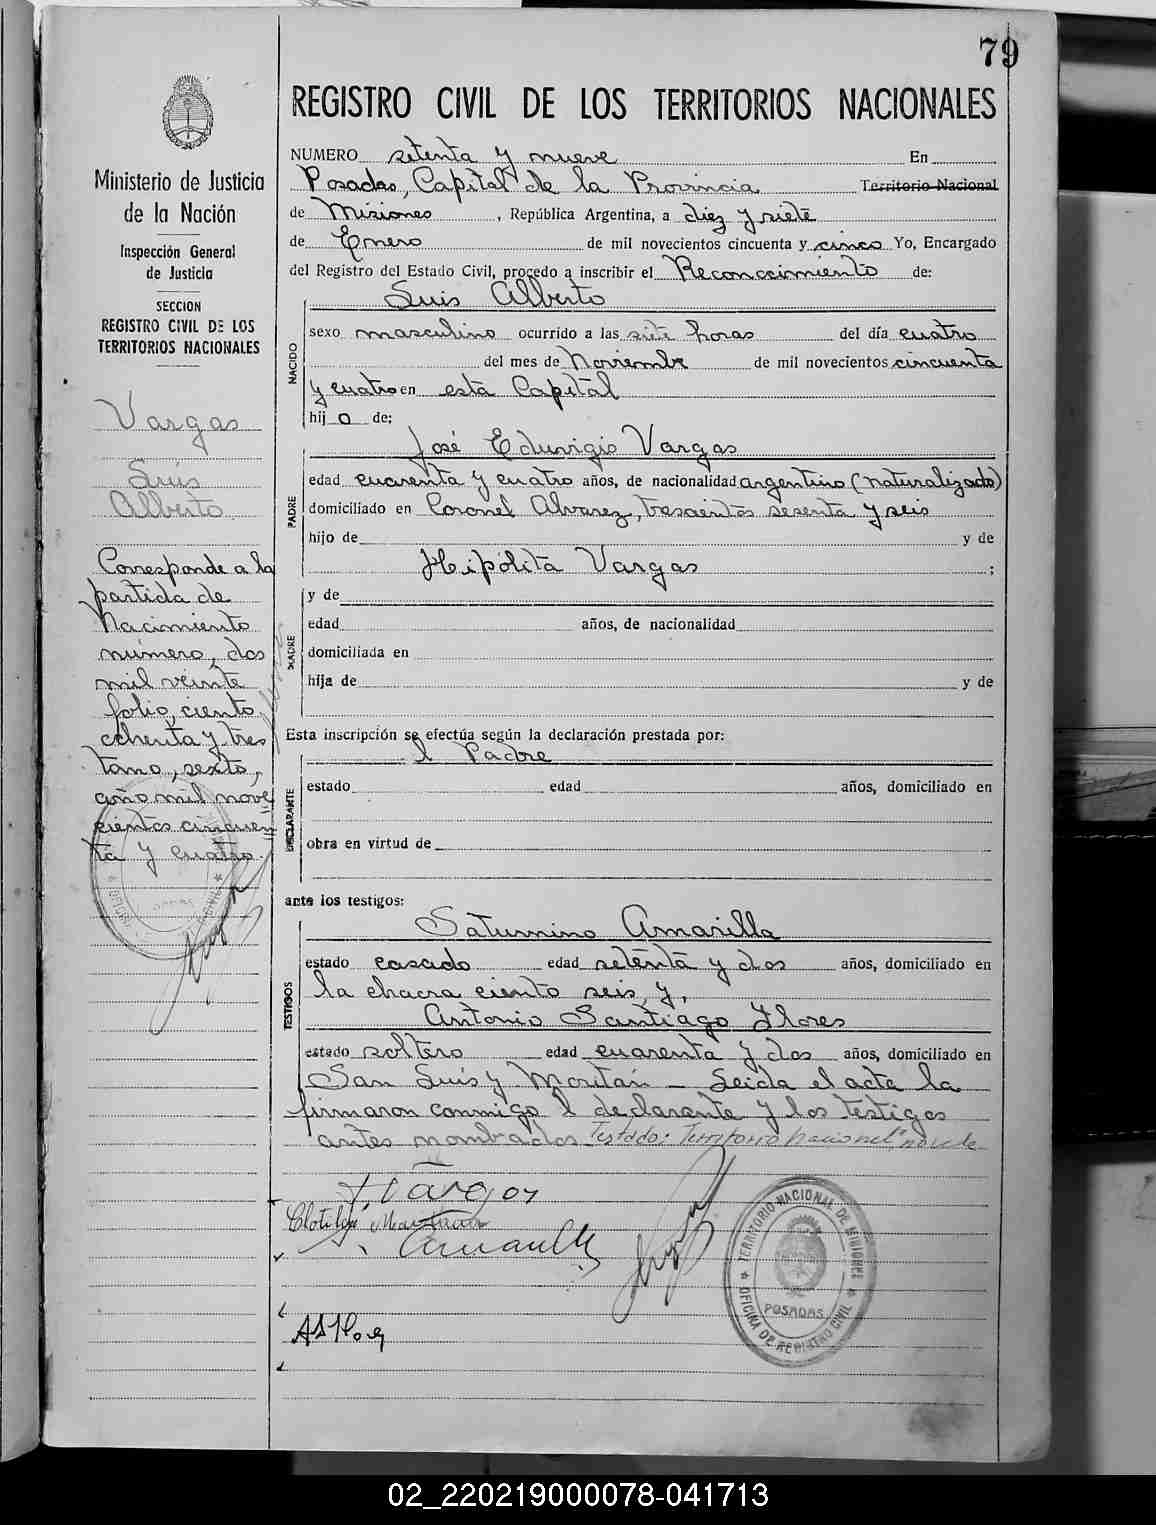 79
Ministerio de Justicia
de la Nación
Inspección General
de Justicia
SECCION
REGISTRO CIVIL DE LOS
TERRITORIOS NACIONALES
Vargas
Luis
Alberto
Corresponde a la
partida de
Nacimiento
número, dos
mil veinte
folio, ciento
ochenta y tres
tomo, sexto,
año mil nove
cientos cincuen
ta y cuatro.
REGISTRO CIVIL DE LOS TERRITORIOS NACIONALES
NUMERO setenta y nueve En
Posadas, Capital de la Provincia Territorio Nacional
de Misiones, República Argentina, a diez y siete
de Enero de mil novecientos cincuenta y cinco Yo, Encargado
del Registro del Estado Civil, procedo a inscribir el Reconocimiento de:
Luis Alberto
NACIDO
sexo masculino ocurrido a las siete horas del día cuatro
del mes de Noviembre de mil novecientos cincuenta
y cuatro en esta Capital
hijo de:
José Eduvigis Vargas
PADRE
edad cuarenta y cuatro años, de nacionalidad argentino (naturalizado)
domiciliado en Coronel Alvarez, trescientos sesenta y seis
hijo de y de
Hipólita Vargas ;
y de
MADRE
edad años, de nacionalidad
domiciliada en
hija de y de
Esta inscripción se efectúa según la declaración prestada por:
el Padre
DECLARANTE
estado edad años, domiciliado en
obra en virtud de
ante los testigos:
Saturnino Amarilla
TESTIGOS
estado casado edad setenta y dos años, domiciliado en
la chacra ciento seis, y,
Antonio Santiago Flores
estado soltero edad cuarenta y dos años, domiciliado en
San Luis y Moritán - Leida el acta la
firmaron conmigo el declarante y los testigos
antes nombrados Testado: "Territorio Nacional" no vale
J. Vargas
TERRITORIO NACIONAL DE MISIONES
POSADAS
OFICINA DE REGISTRO CIVIL
02_220219000078-041713